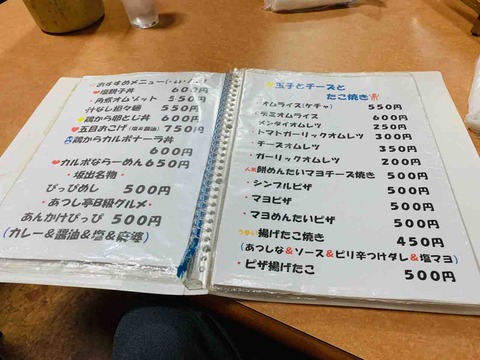 おすすめメニュー
❤塩親子丼 600円
・角煮オムソット 550円
汁なし担々麺 550円
鶏から卵とじ丼 600円
❤五目おこげ(塩&醤油) 750円
鶏からカルボナーラ丼
600円
❤カルボならーめん 650円
・坂出名物・
ぴっぴめし 500円
・あつし亭B級グルメ・
あんかけぴっぴ 500円
(カレー&醤油&塩&麻婆)
玉子とチーズと
たこ焼き
オムライス(ケチャ) 550円
・デミオムライス 600円
・メンタイオムレツ 250円
・トマトガーリックオムレツ 300円
・チーズオムレツ 350円
・ガーリックオムレツ 200円
人気 餅めんたいマヨチーズ焼き 500円
・シンプルピザ 500円
・マヨピザ 500円
・マヨめんたいピザ 500円
うまい 揚げたこ焼き 450円
(あつしな&ソース&ピリ辛つけダレ&塩マヨ)
・ピザ揚げたこ 500円